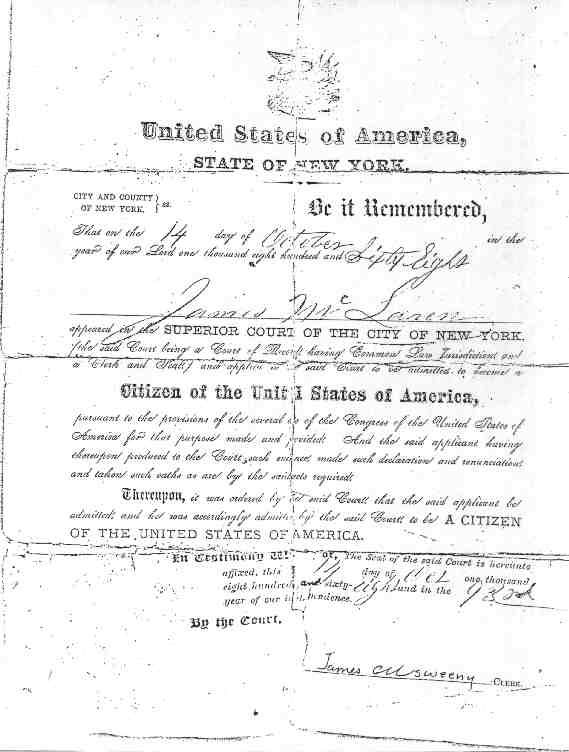 United States of America,
STATE OF NEW YORK.
CITY AND COUNTY
OF NEW YORK. } ss.
Be it Remembered,
That on the 14 day of October in the
year of our Lord one thousand eight hundred and Sixty Eight
James Mc Laren
appeared in the SUPERIOR COURT OF THE CITY OF NEW-YORK,
(the said Court being a Court of Record having Common Law Jurisdiction and
a Clerk and Seal,) and applied to said Court to be admitted to become a
Citizen of the Unit d States of America,
pursuant to the provisions of the several of the Congress of the United States of
America for that purpose made and ovided: And the said applicant having
thereupon produced to the Court such made such declaration and renunciation
and taken such oaths as are by the said acts required:
Thereupon, it was ordered by said Court, that the said applicant be
admitted, and he was accordingly admitte by the said Court to be A CITIZEN
OF THE UNITED STATES OF AMERICA.
In Testimony W of, The Seal of the said Court is hereunto
affixed, this 14 day of Oct one thousand
eight hundred and sixty-eight and in the 93rd
year of our Independence.
By the Court.
James M Sweeny CLERK.